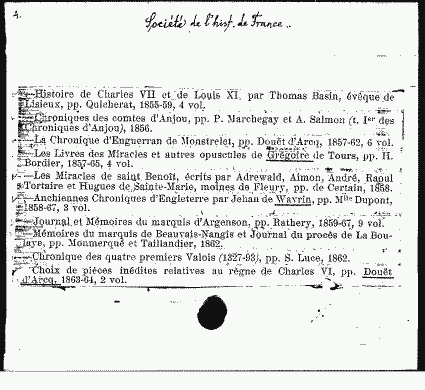 4.
Société de l'hist. de France..
— Histoire de Charles VII et de Louis XI, par Thomas Basin, évêque de
Lisieux, pp. Quicherat, 1855-59, 4 vol.
— Chroniques des comtes d'Anjou, pp. P. Marchegay et A. Salmon (t. Ier des
Chroniques d'Anjou), 1856.
— La Chronique d'Enguerran de Monstrelet, pp. Douët d'Arcq, 1857-62, 6 vol.
— Les Livres des Miracles et autres opuscules de Grégoire de Tours, pp. H.
Bordier, 1857-65, 4 vol.
— Les Miracles de saint Benoît, écrits par Adrewald, Aimon, André, Raoul
Tortaire et Hugues de Sainte-Marie, moines de Fleury, pp. de Certain, 1858.
— Anchiennes Chroniques d'Engleterre par Jehan de Wavrin, pp. Mlle Dupont,
1858-67, 3 vol.
— Journal et Mémoires du marquis d'Argenson, pp. Rathery, 1859-67, 9 vol.
— Mémoires du marquis de Beauvais-Nangis et Journal du procès de La Bou-
laye, pp. Monmerqué et Taillandier, 1862.
— Chronique des quatre premiers Valois (1327-93), pp. S. Luce, 1862.
— Choix de pièces inédites relatives au règne de Charles VI, pp. Douët
d'Arcq, 1863-64, 2 vol.